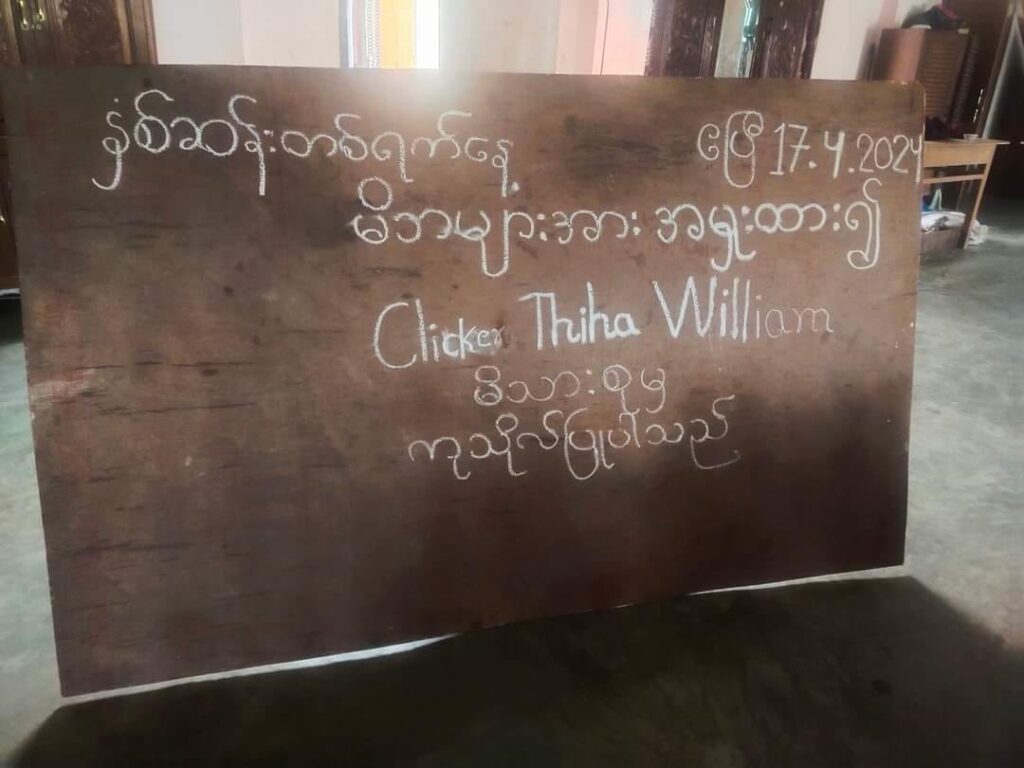 နှံစ်ဆန်းတစ်ရက်နေ့ ဧပြီ 17.4.2024
မိဘများအား အမှူးထား၍
Clicker Thiha William
မိသားစုမှ
ကုသိုလ်ပြုပါသည်